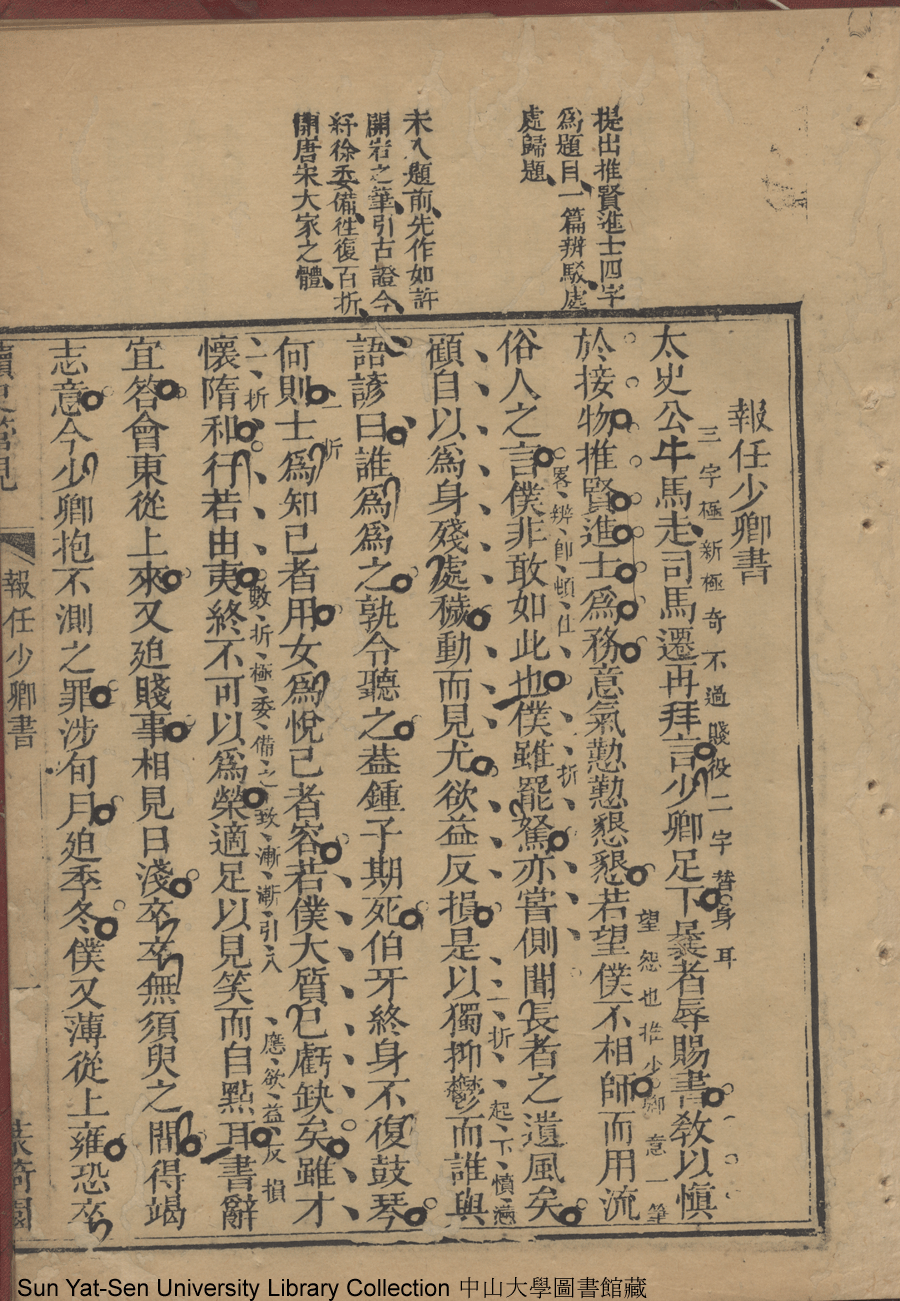 提出推賢進士四字
爲題目一篇辨駁處
處歸題
未入題前先作如許
開岩之筆引古證今
紆徐委備徃復百折
開唐宋大家之體
報任少卿書
三字極新極奇不過賤役二字替身耳
太史公牛馬走司馬遷再拜言少卿足下曩者辱賜書敎以愼
望怨也推少卿意一筆
於接物推賢進士爲務意氣懃懃懇懇若望僕不相師而用流
畧辨卽頓住
折
俗人之言僕非敢如此也僕雖罷駑亦嘗側聞長者之遺風矣
一折
起下憤懣
顧自以爲身殘處穢動而見尤欲益反損是以獨抑鬱而誰與
語諺曰誰爲爲之孰令聽之葢鍾子期死伯牙終身不復鼓琴
一折
何則士爲知己者用女爲悅己者容若僕大質已虧缺矣雖才
一折
數折極委備之致漸漸引入
應欲益反損
懷隋和行若由夷終不可以爲榮適足以見笑而自點耳書辭
宜答會東從上來又廹賤事相見日淺卒卒無須臾之閒得竭
志意今少卿抱不測之罪涉旬月廹季冬僕又薄從上雍恐卒
讀史管見
報任少卿書
一
Sun Yat-Sen University Library Collection 中山大學圖書館藏